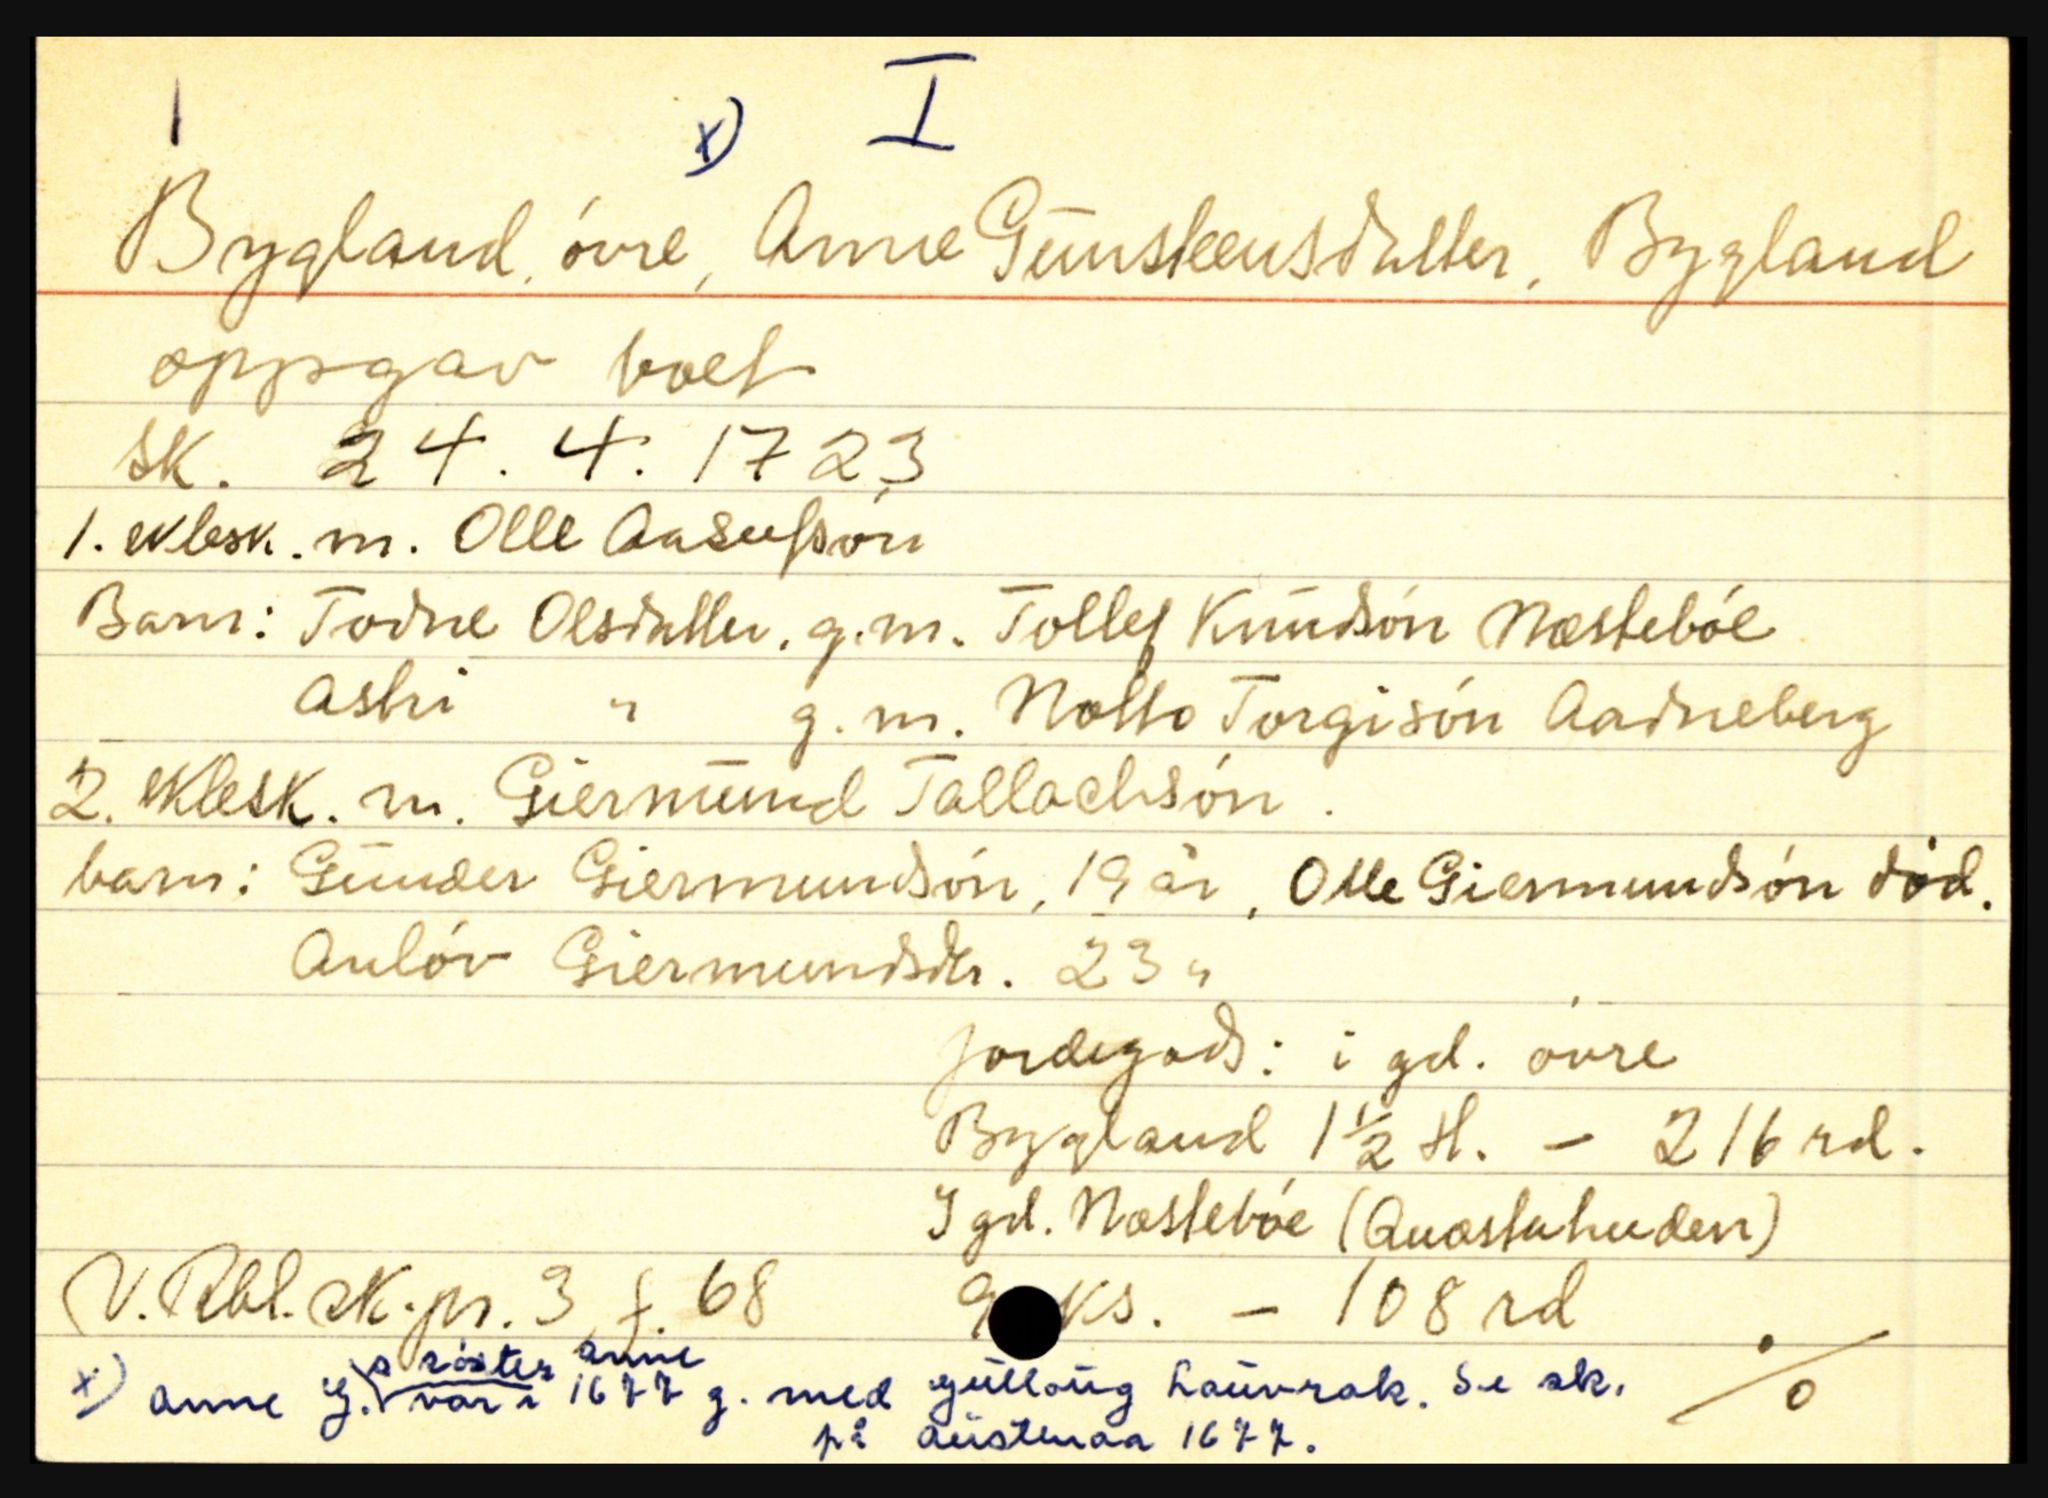 1 x) I
Bygland, óvre, Anne Gunsteensdatter, Bygland
oppgav boet
sk. 24. 4. 1723
1. eklesk. m. Olle Aasulfsón
Barn: Todne Olsdatter. g.m. Tollef Knudsón Næstebóe
Astri " g.m. Notto Torgisón Aadneberg
2. eklesk. m. Giermund Tallachsón.
barn: Gunder Giermundsón, 19 år, Olle Giermundsón død.
Anlóv Giermundsdtr. 23 "
Jordegods: i gd. óvre
Bygland 1½ tl. - 216 rd.
I gd. Næstebóe (Quæstuhuden)
V. Rbl. sk.pr. 3, f. 68 9 ks. - 108 rd
x) Anne G.s söster Anne var i 1677 g. med Gulloug Lauvrak. Se sk.
på Austenaa 1677.
%